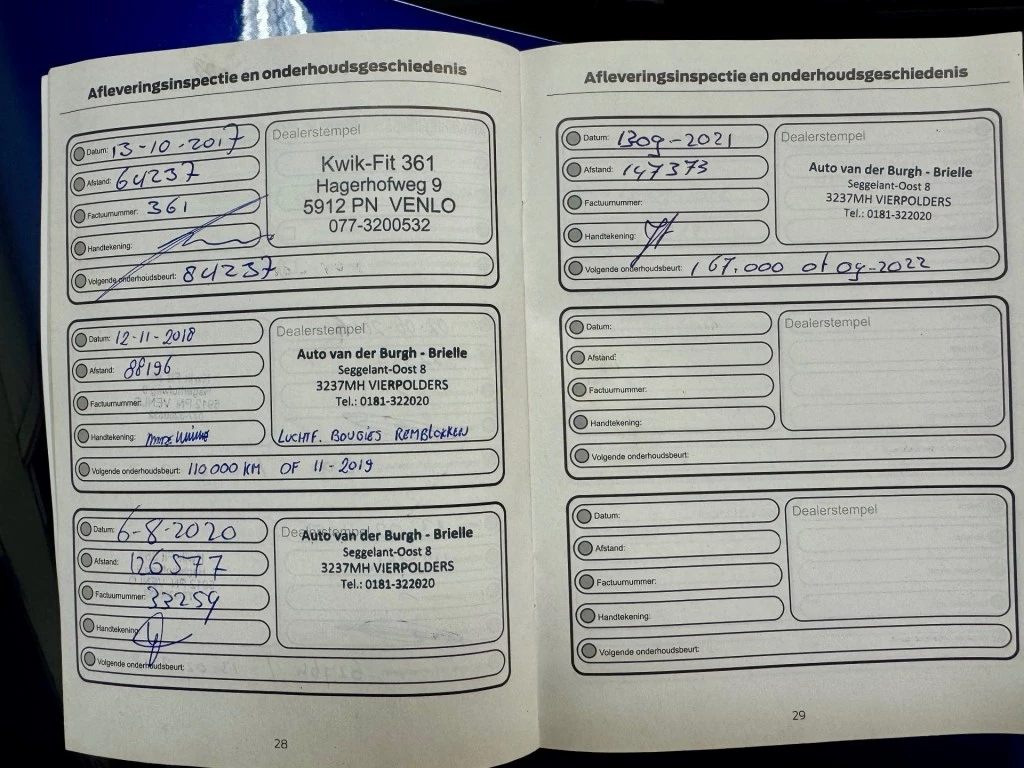 Afleveringsinspectie en onderhoudsgeschiedenis
Datum: 13-10-2017
Afstand: 64237
Factuurnummer: 361
Handtekening:
Volgende onderhoudsbeurt: 84237
Dealerstempel
Kwik-Fit 361
Hagerhofweg 9
5912 PN VENLO
077-3200532
Datum: 12-11-2018
Afstand: 88196
Factuurnummer:
Handtekening:
Volgende onderhoudsbeurt: 110 000 KM OF 11-2019
Dealerstempel
Auto van der Burgh - Brielle
Seggelant-Oost 8
3237MH VIERPOLDERS
Tel.: 0181-322020
LUCHTF. BOUGIES REMBLOKKEN
Datum: 6-8-2020
Afstand: 126577
Factuurnummer: 33254
Handtekening:
Volgende onderhoudsbeurt:
Dealerstempel
Auto van der Burgh - Brielle
Seggelant-Oost 8
3237MH VIERPOLDERS
Tel.: 0181-322020
28
Afleveringsinspectie en onderhoudsgeschiedenis
Datum: 1309-2021
Afstand: 147373
Factuurnummer:
Handtekening:
Volgende onderhoudsbeurt: 167.000 of 09-2022
Dealerstempel
Auto van der Burgh - Brielle
Seggelant-Oost 8
3237MH VIERPOLDERS
Tel.: 0181-322020
Datum:
Afstand:
Factuurnummer:
Handtekening:
Volgende onderhoudsbeurt:
Dealerstempel
Datum:
Afstand:
Factuurnummer:
Handtekening:
Volgende onderhoudsbeurt:
Dealerstempel
29